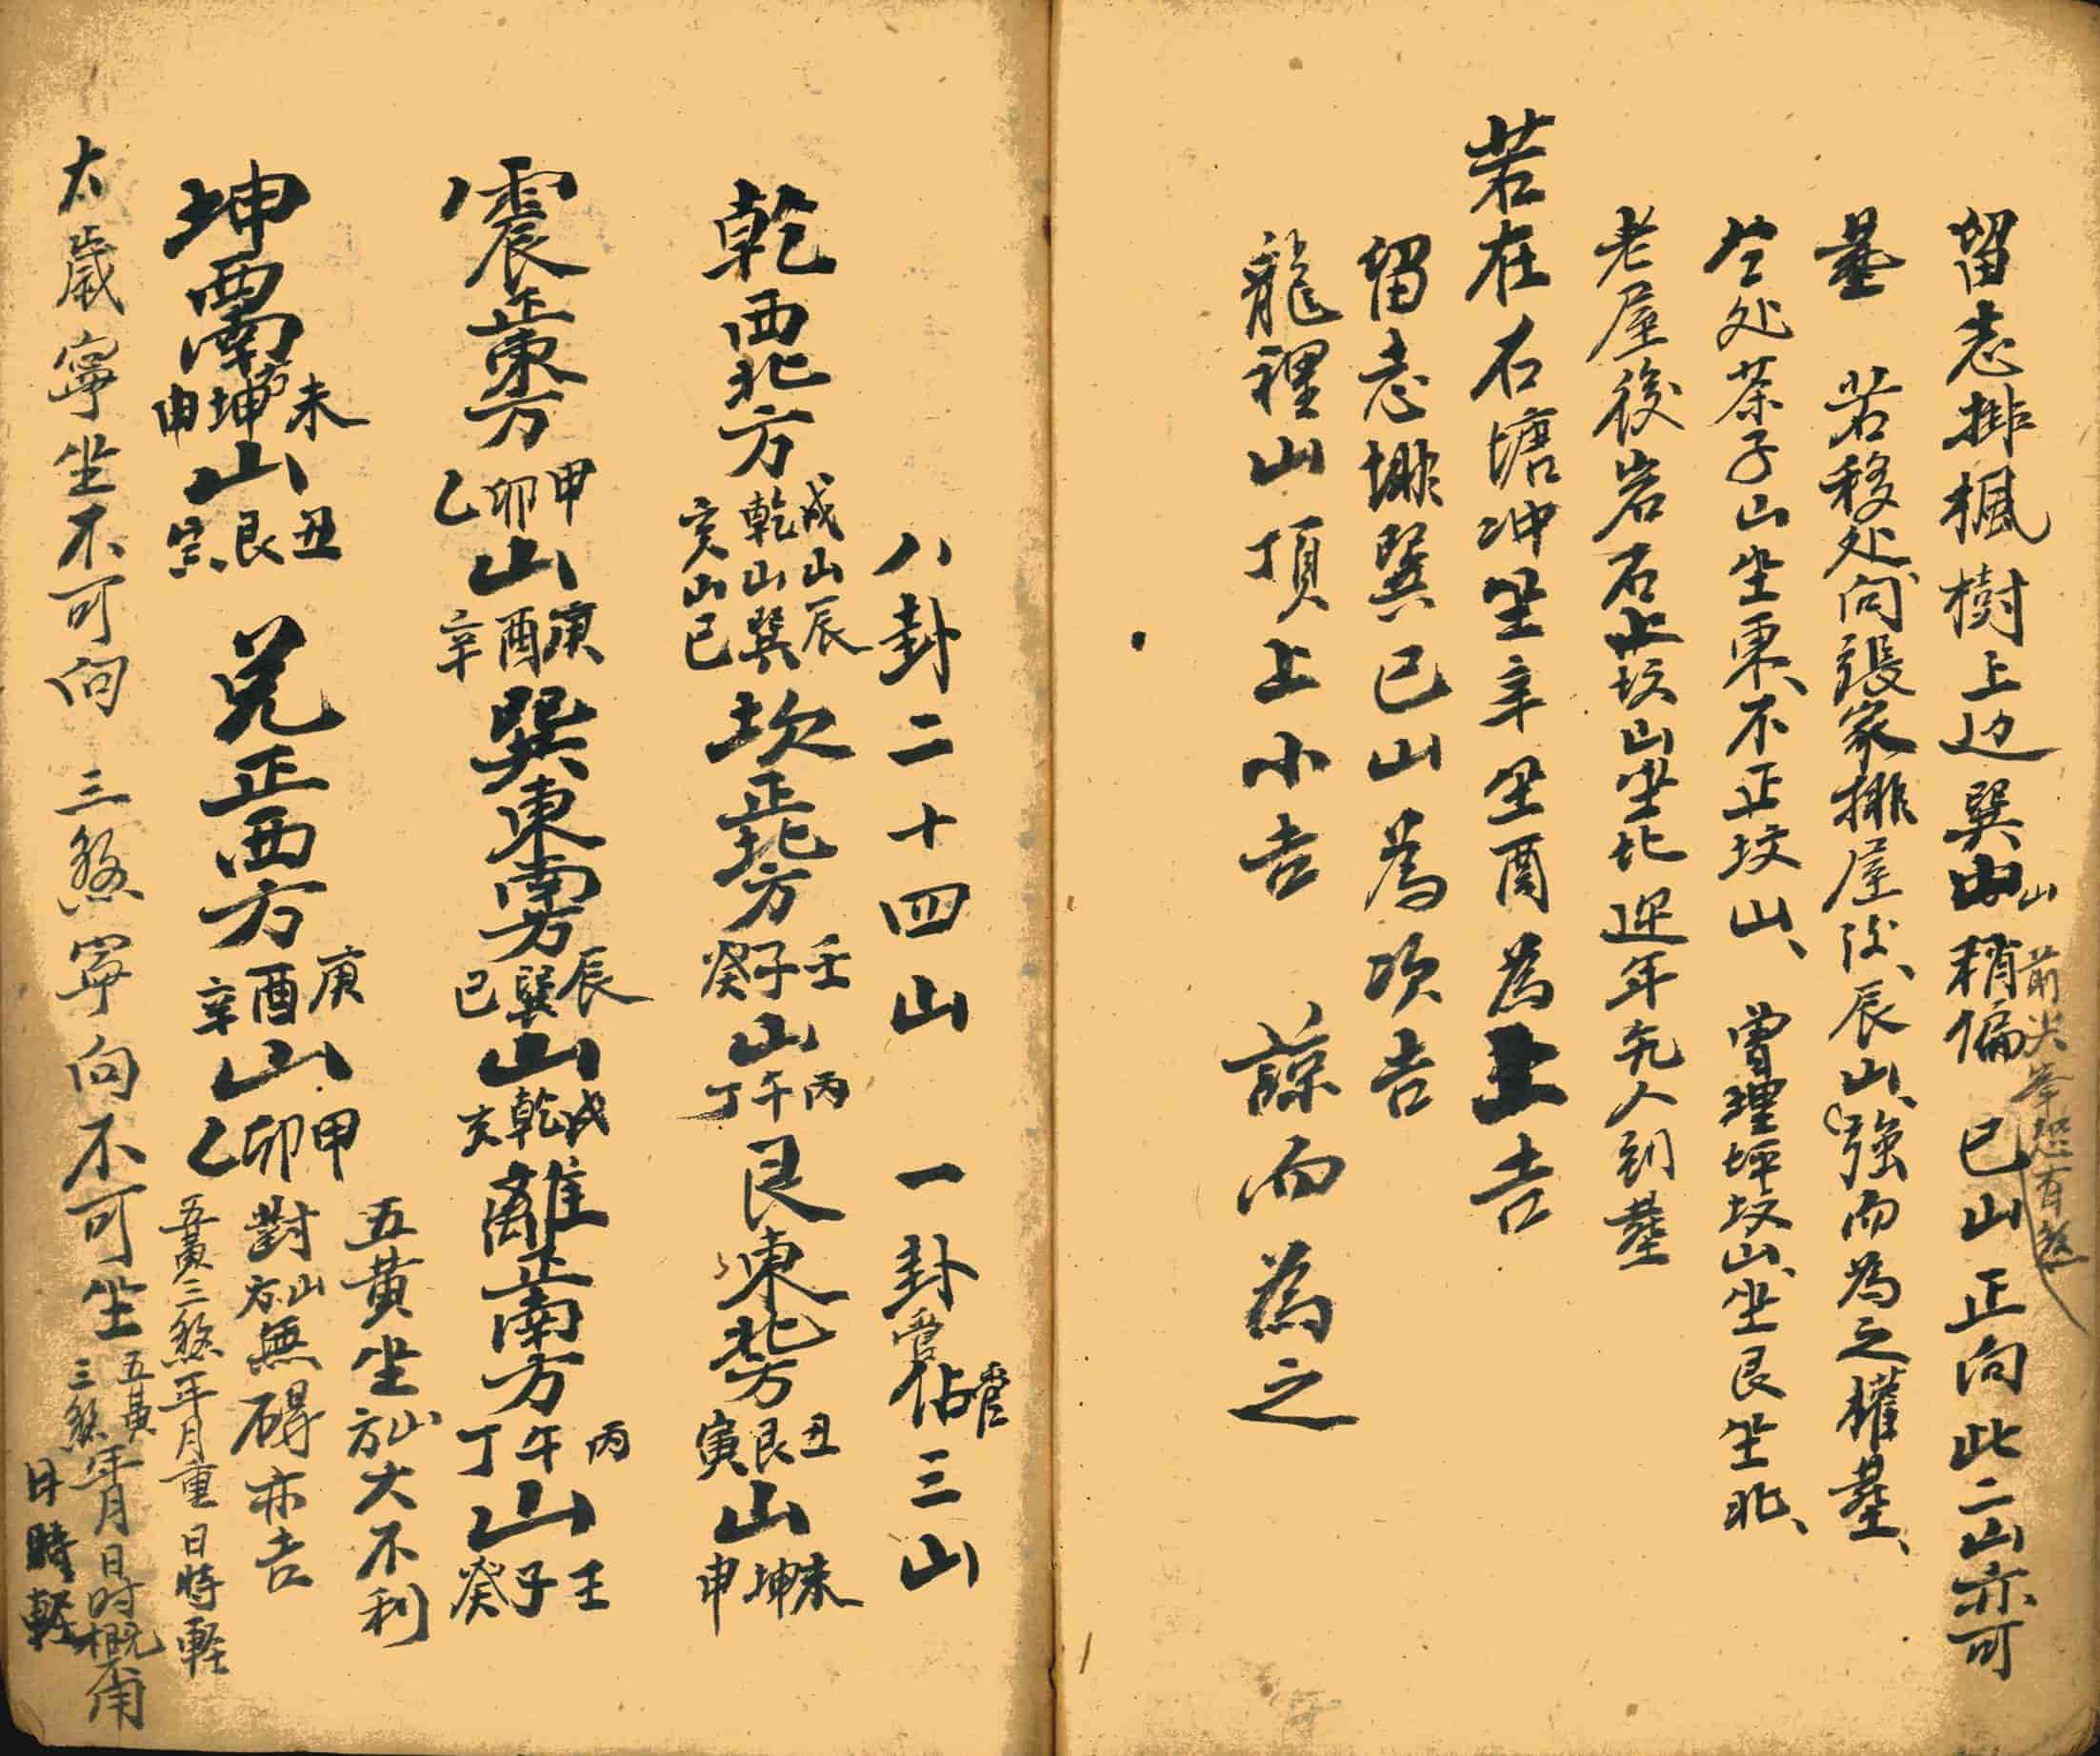 留志排楓樹上边巽山稍偏巳山正向此二山亦可
山前尖峯恐有煞
墓 若移处向張家排屋后辰山強而為之權墓
仝处茶子山坐東不正坟山、曾理坪坟山坐艮坐北、
老屋後岩石上坟山坐北迎年先人到墓
若在石塘冲坐辛坐酉為上吉
留志排巽巳山為次吉
龍裡山頂上小吉 諒而為之
八卦二十四山 一卦管佔三山
乾西北方戌山辰乾山巽亥山巳坎正北方壬子癸山丙午丁艮東北方丑艮寅山未坤申
震正東方甲卯乙山庚酉辛巽東南方辰巽巳山戌乾亥離正南方丙午丁山壬子癸
坤西南方未坤申山丑艮寅 兌正西方庚酉辛山甲卯乙
五黃坐山方大不利
對山方無碍亦吉
五黃三煞年月重日時輕
太歲寧坐不可向三煞寧向不可坐五黃三煞年月日时概用
日時輕